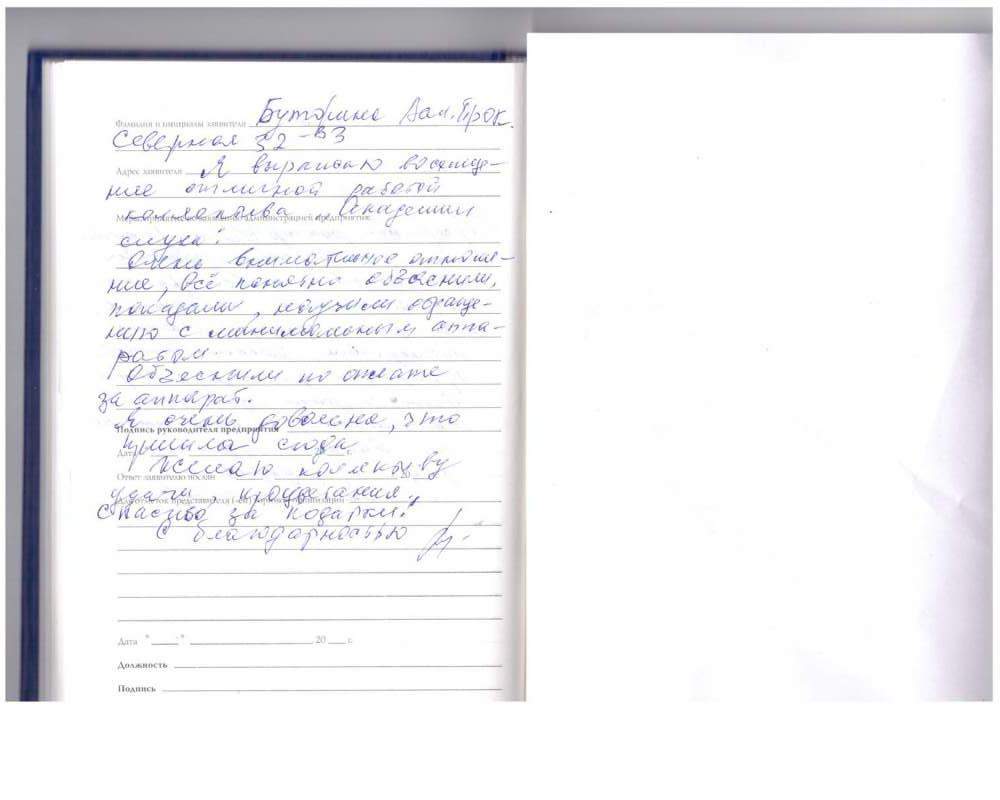 Фамилия и инициалы заявителя Буторина Вал. Прок.
Северная 32-33
Адрес заявителя Я выражаю восхище-
ние отличной работой
коллектива Академии
слуха!
Очень внимательное отноше-
ние, всё понятно объяснили,
показали, научили обраще-
нию с минимальным аппа-
ратом
Объяснили по оплате
за аппарат.
Я очень довольна, что
Подпись руководителя предприятия
пришла сюда.
Дата
Желаю коллективу
Ответ заявителю послан 20
удачи, процветания.
Спасибо за подарки!
С благодарностью
Дата " " 20 г.
Должность
Подпись